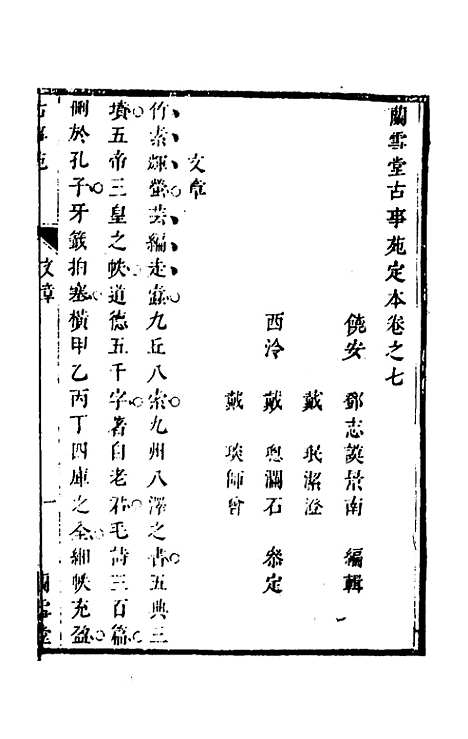 蘭雪堂古事苑定本卷之七
饒安 鄧志謨景南 編輯
戴 珉潔澄
西泠 戴 恩瀾石 叅定
戴 琰師曾
文章
竹素輝螢芸編走蠹九丘八索九州八澤之書五典三
墳五帝三皇之帙道德五千字著自老君毛詩三百篇
刪於孔子牙籤拍塞橫甲乙丙丁四庫之全緗帙充盈
古事苑
文章
一
蘭雪堂